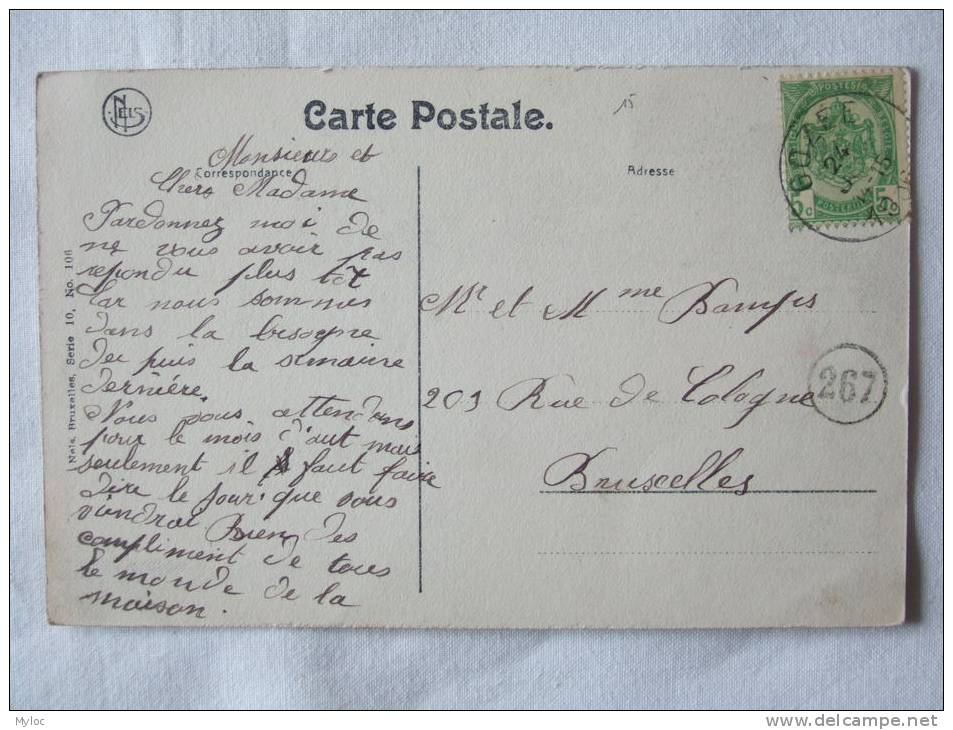 NELS
Carte Postale.
15
Correspondance
Adresse
Monsieur et
Chers Madame
Pardonnez moi de
ne vous avoir pas
repondu plus tôt
Car nous sommes
dans la besogne
de puis la semaine
dernière.
Nous vous attendons
pour le mois d'aut mais
seulement il faut faire
dire le jour que vous
viendrai Bien des
compliment de tous
le monde de la
maison.
Nels, Bruxelles, Serie 10, No. 106
POSTES
5c
5c
GOZEE
24
5
Mr et Mme
203 Rue de Cologne
Bruxelles
267
Myloc
www.delcampe.net